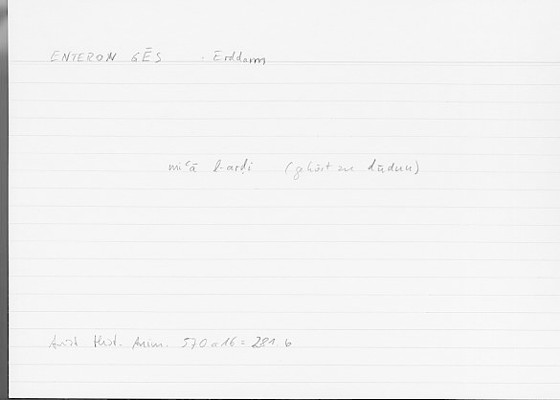 ENTERON GĒS - Erddarm
miʿā l-arḍi (gehört zu dūdun)
Arist Hist. Anim. 570 a 16 = 281. 6